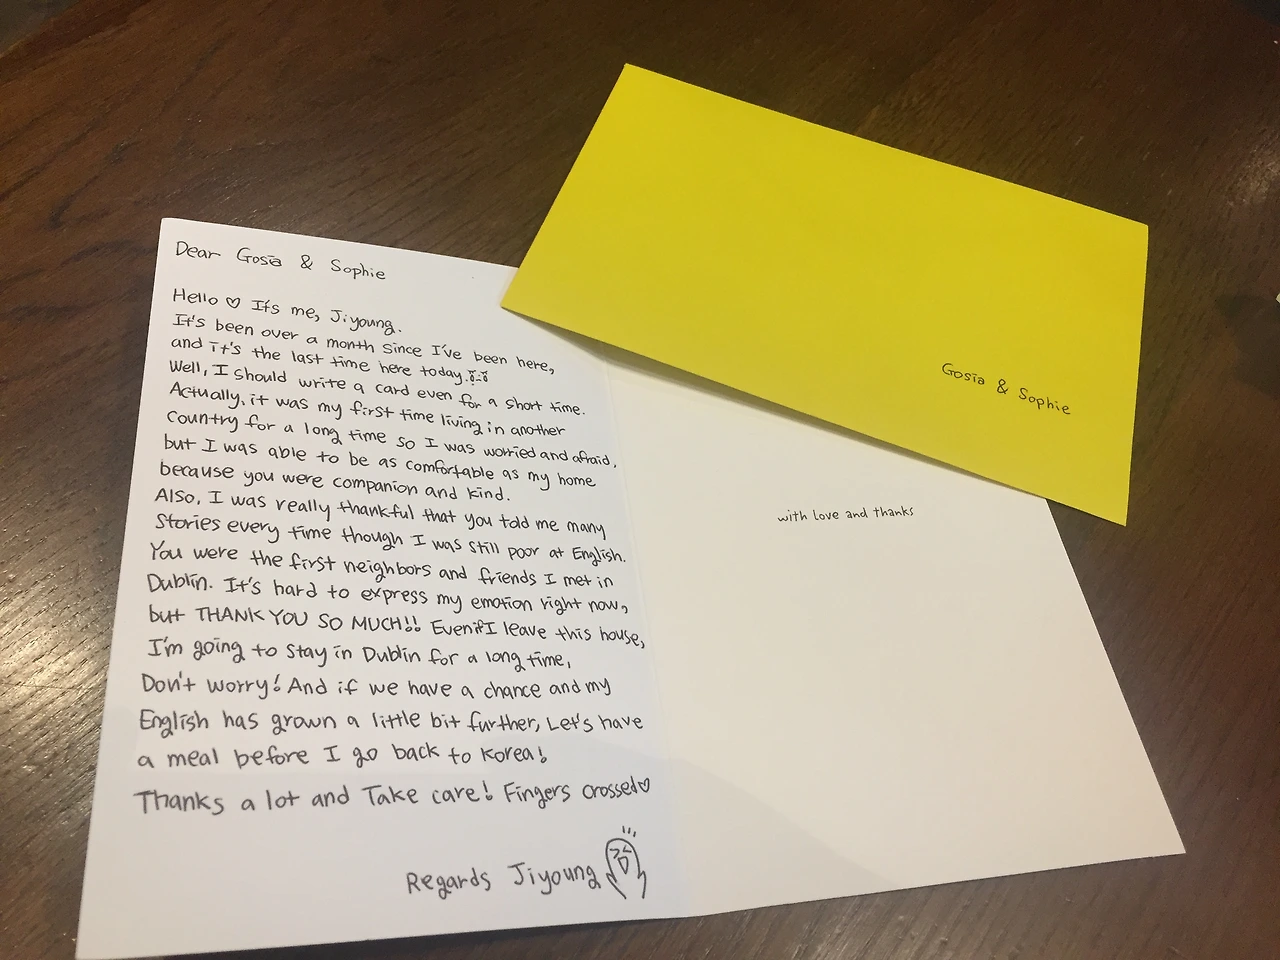 Dear Gosia & Sophie
Hello ♡ It's me, Jiyoung.
It's been over a month since I've been here,
and it's the last time here today.
Well, I should write a card even for a short time.
Actually, it was my first time living in another
country for a long time so I was worried and afraid.
but I was able to be as comfortable as my home
because you were companion and kind.
Also, I was really thankful that you told me many
stories every time though I was still poor at English.
You were the first neighbors and friends I met in
Dublin. It's hard to express my emotion right now,
but THANK YOU SO MUCH!! Even if I leave this house,
I'm going to stay in Dublin for a long time,
Don't worry! And if we have a chance and my
English has grown a little bit further, Let's have
a meal before I go back to Korea!
Thanks a lot and Take care! Fingers crossed♡
Regards Jiyoung
with love and thanks
Gosia & Sophie